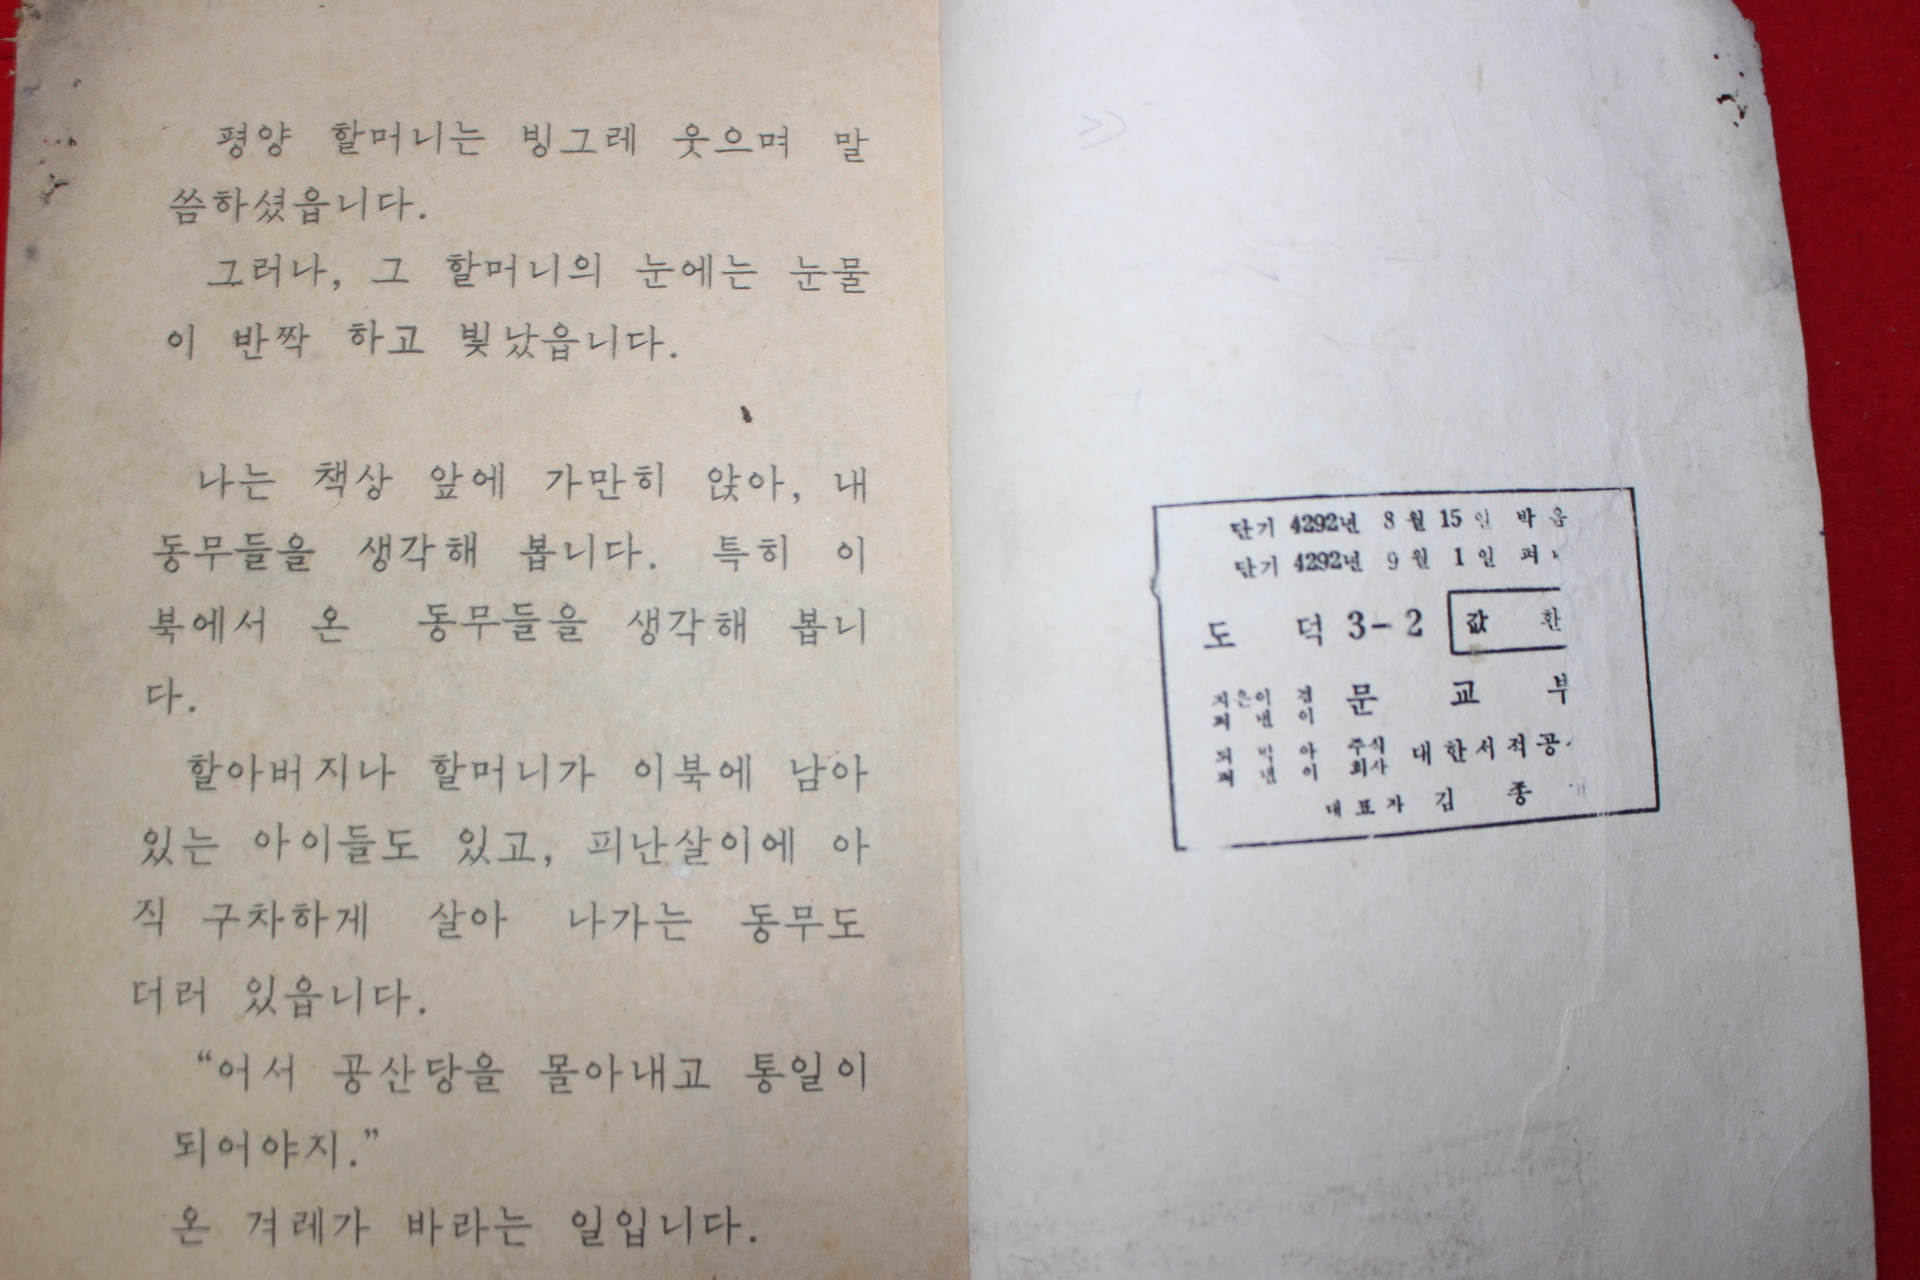 평양 할머니는 빙그레 웃으며 말
씀하셨읍니다.
그러나, 그 할머니의 눈에는 눈물
이 반짝 하고 빛났읍니다.
나는 책상 앞에 가만히 앉아, 내
동무들을 생각해 봅니다. 특히 이
북에서 온 동무들을 생각해 봅니
다.
할아버지나 할머니가 이북에 남아
있는 아이들도 있고, 피난살이에 아
직 구차하게 살아 나가는 동무도
더러 있읍니다.
“어서 공산당을 몰아내고 통일이
되어야지.”
온 겨레가 바라는 일입니다.
단기 4292년 8월 15일 박음
단기 4292년 9월 1일 펴
도 덕 3-2 값 환
지은이 겸
펴낸이 문교부
되박아
펴낸이 주식
회사 대한서적공
대표자 김 종